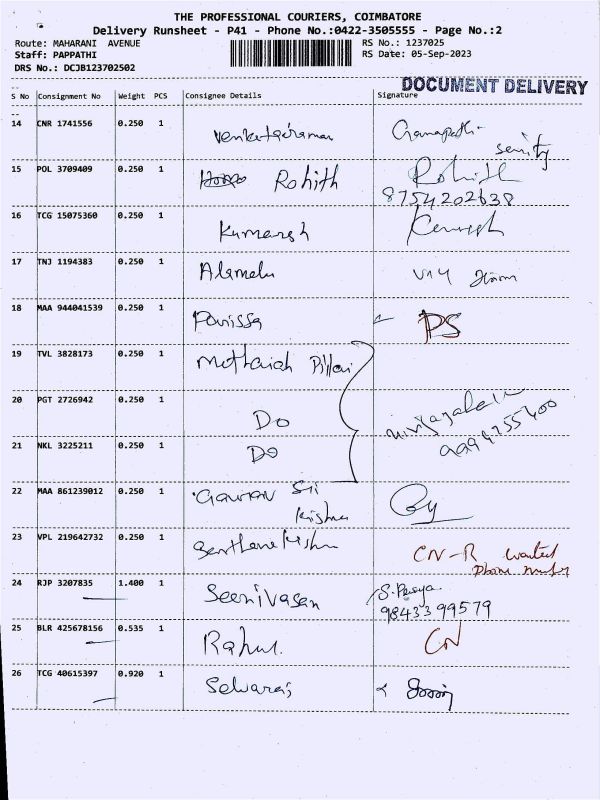 THE PROFESSIONAL COURIERS, COIMBATORE
Delivery Runsheet - P41 - Phone No.:0422-3505555 - Page No.:2
Route: MAHARANI AVENUE
RS No.: 1237025
Staff: PAPPATHI
RS Date: 05-Sep-2023
DRS No.: DCJB123702502
DOCUMENT DELIVERY
S No Consignment No Weight PCS Consignee Details Signature
14 CNR 1741556 0.250 1
15 POL 3709409 0.250 1 Rohith Rohith
8754202638
16 TCG 15075360 0.250 1 Kumaresh
17 TNJ 1194383 0.250 1 Alamelu
18 MAA 944041539 0.250 1 PS
19 TVL 3828173 0.250 1 Pillai
20 PGT 2726942 0.250 1 Do
21 NKL 3225211 0.250 1 Do
22 MAA 861239012 0.250 1 Sri
23 VPL 219642732 0.250 1 CN-R wanted
phone number
24 RJP 3207835 1.400 1 Seenivasan
9843399579
25 BLR 425678156 0.535 1 Rahul. CN
26 TCG 40615397 0.920 1 Selvaraj